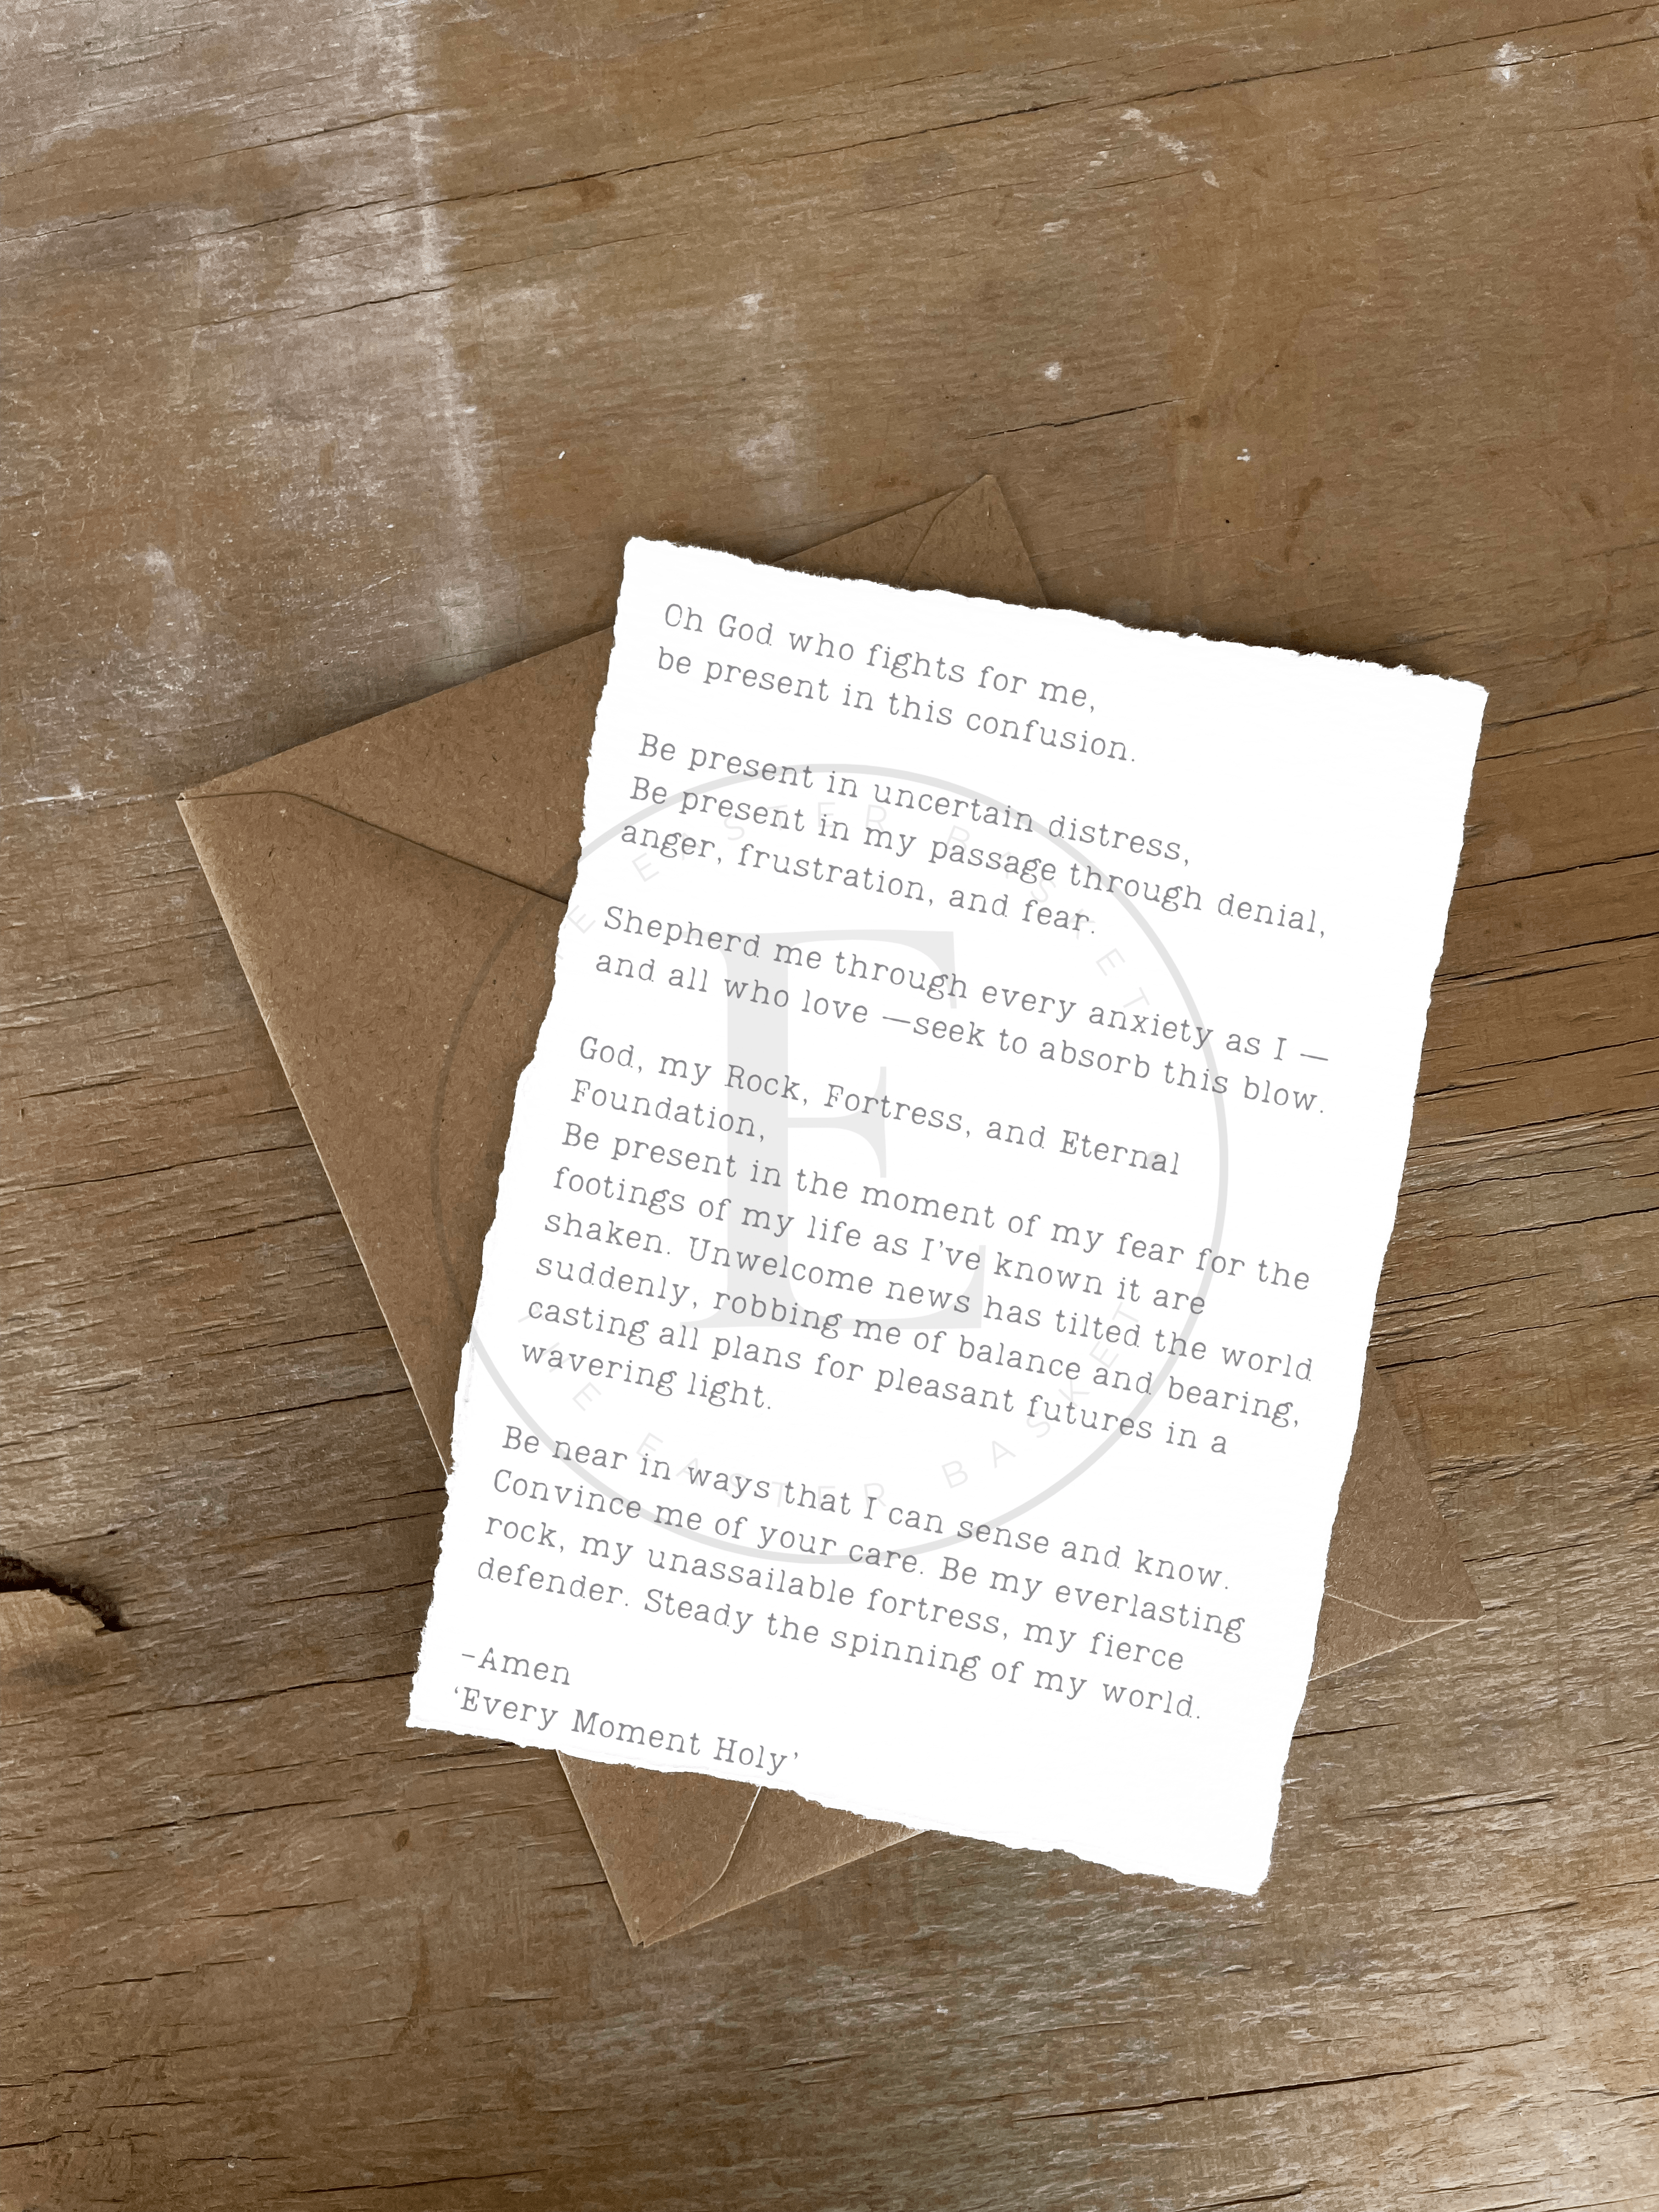 Oh God who fights for me,
be present in this confusion.
Be present in uncertain distress,
Be present in my passage through denial,
anger, frustration, and fear.
Shepherd me through every anxiety as I —
and all who love —seek to absorb this blow.
God, my Rock, Fortress, and Eternal
Foundation,
Be present in the moment of my fear for the
footings of my life as I've known it are
shaken. Unwelcome news has tilted the world
suddenly, robbing me of balance and bearing,
casting all plans for pleasant futures in a
wavering light.
Be near in ways that I can sense and know.
Convince me of your care. Be my everlasting
rock, my unassailable fortress, my fierce
defender. Steady the spinning of my world.
-Amen
‘Every Moment Holy’
THE EASTER BASKET
E
THE EASTER BASKET